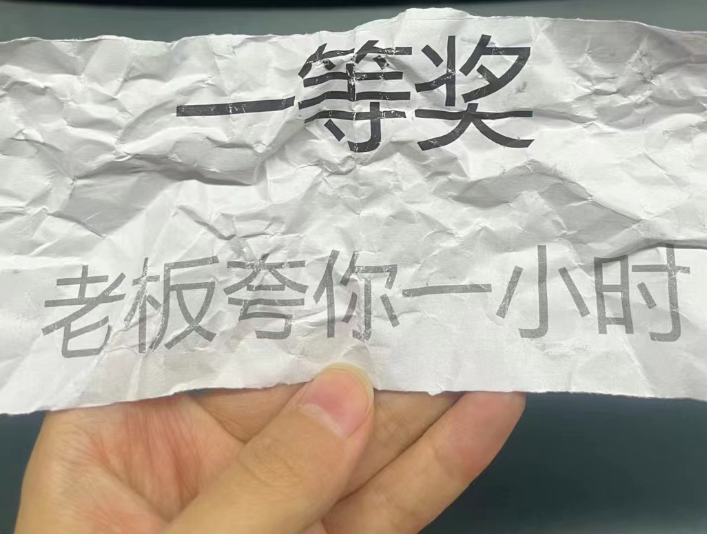 一等奖
老板夸你一小时